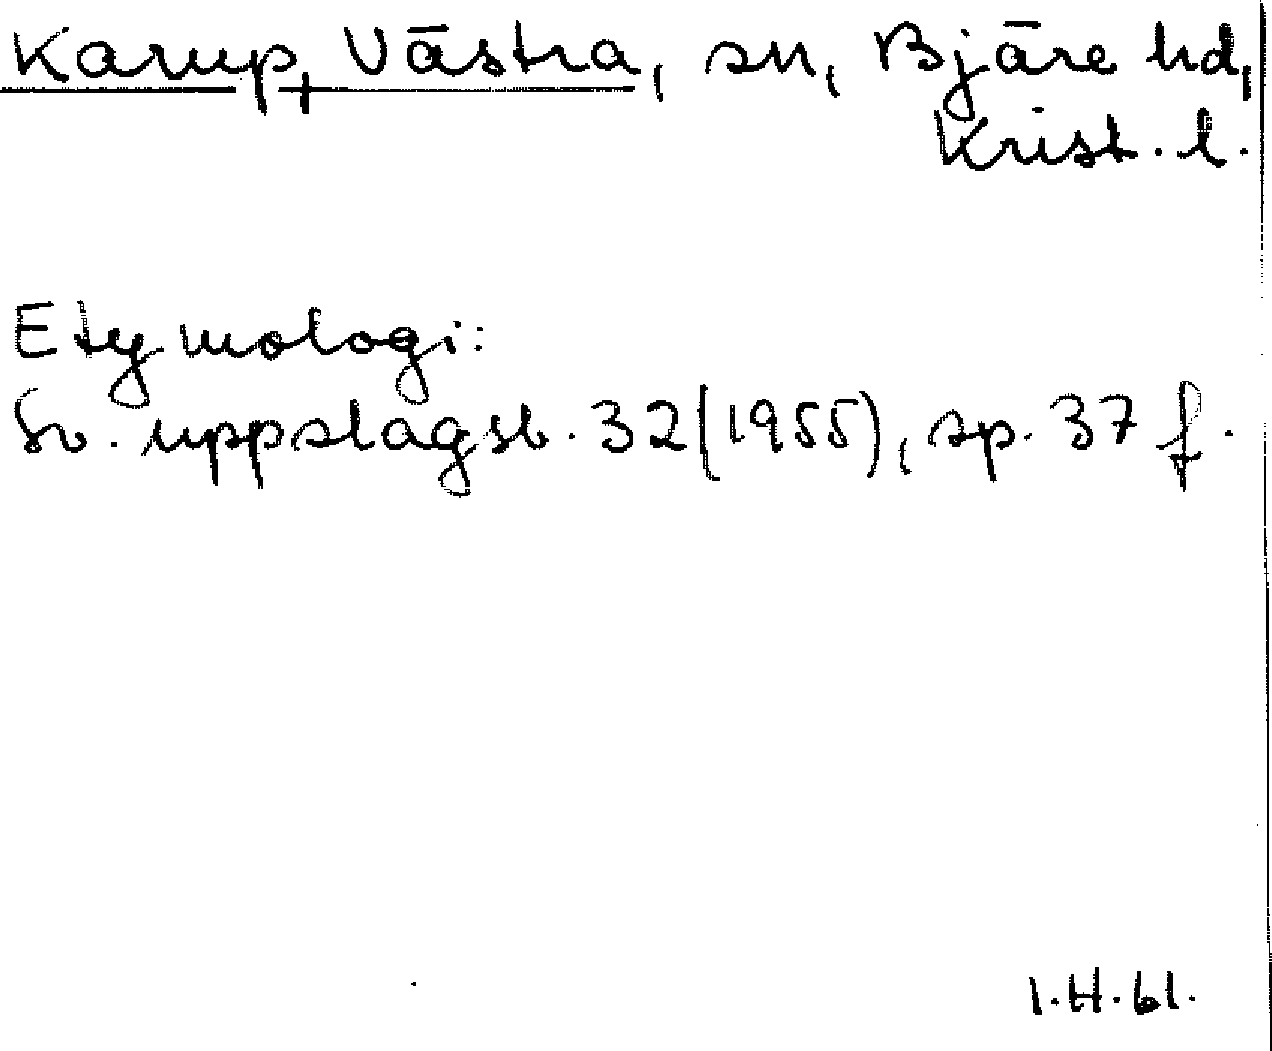 Karup, Västra, sn, Bjäre hd,
Krist. l.
Etymologi:
Sv. uppslagsb. 32 (1955), sp. 37 f.
I.H. 61.